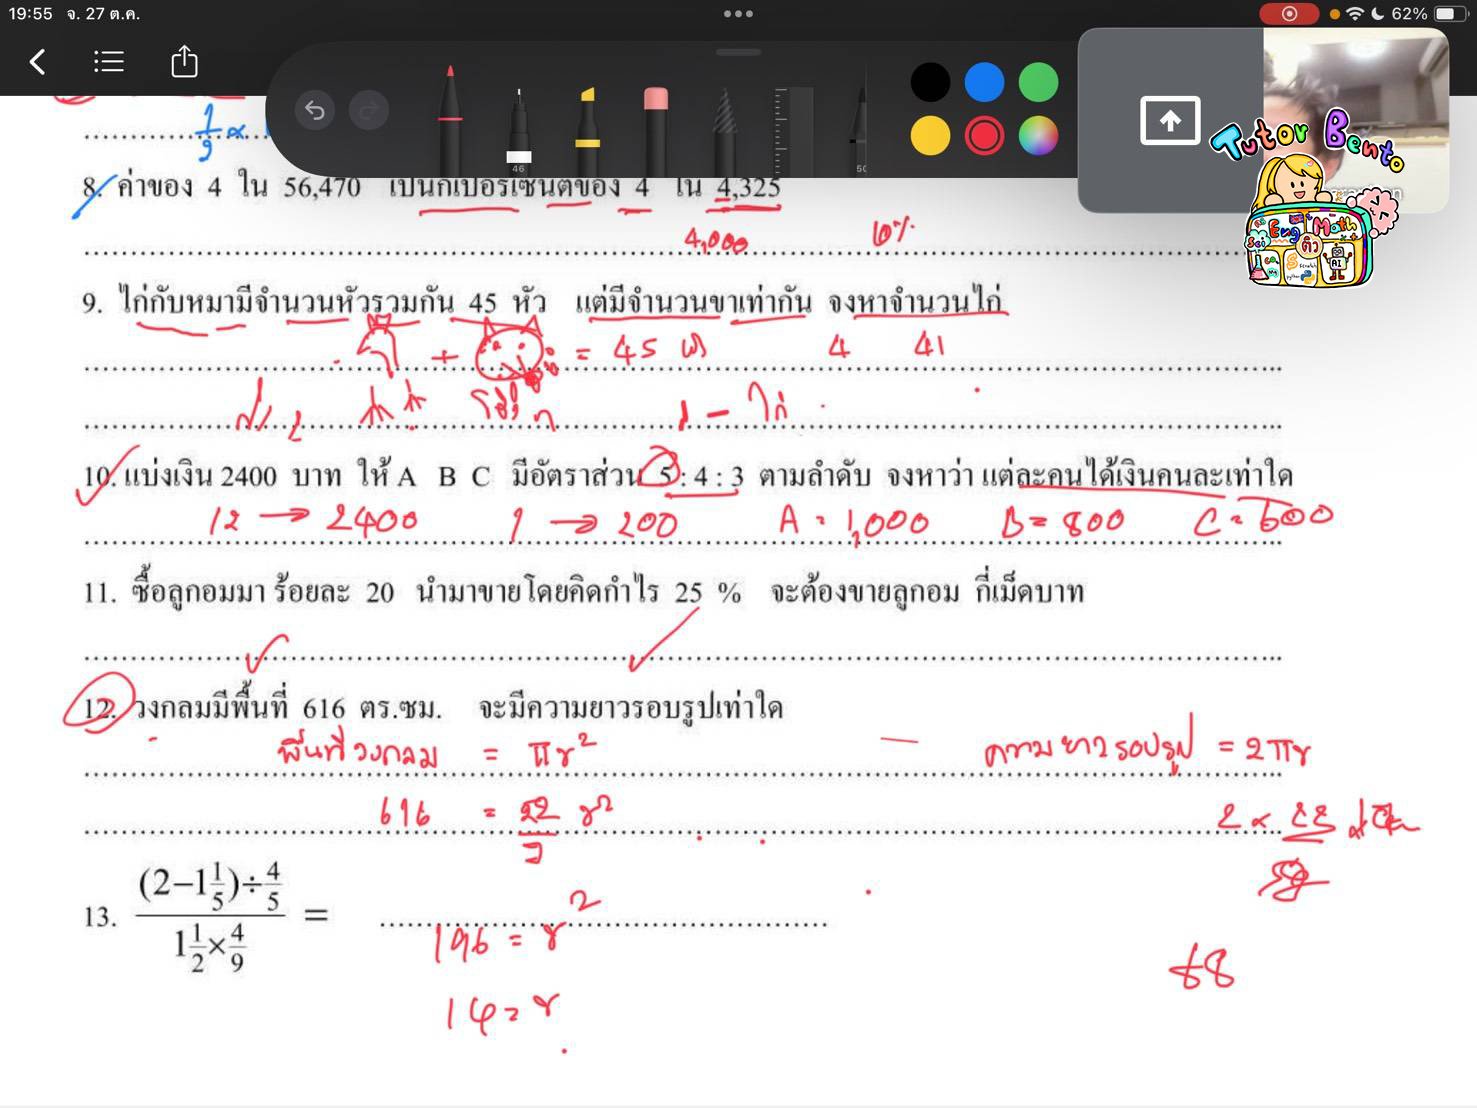 19:55 จ. 27 ต.ค.
62%
46
50
Tutor Bento
Eng Math
Sci ติว AI
1/9 ×
8. ค่าของ 4 ใน 56,470 เป็นกี่เปอร์เซ็นต์ของ 4 ใน 4,325
4,000 10%
9. ไก่กับหมามีจำนวนหัวรวมกัน 45 หัว แต่มีจำนวนขาเท่ากัน จงหาจำนวนไก่
+ = 45 4 41
10. แบ่งเงิน 2400 บาท ให้ A B C มีอัตราส่วน 5 : 4 : 3 ตามลำดับ จงหาว่า แต่ละคนได้เงินคนละเท่าใด
12 → 2400 1 → 200 A = 1,000 B = 800 C = 600
11. ซื้อลูกอมมา ร้อยละ 20 นำมาขายโดยคิดกำไร 25 % จะต้องขายลูกอม กี่เม็ดบาท
12. วงกลมมีพื้นที่ 616 ตร.ซม. จะมีความยาวรอบรูปเท่าใด
พื้นที่วงกลม = πr² ความยาวรอบรูป = 2πr
616 = 22/7 r² 2 × 22
13. (2−1 1/5)÷4/5 / 1 1/2×4/9 =
196 = r²
14 = r
88